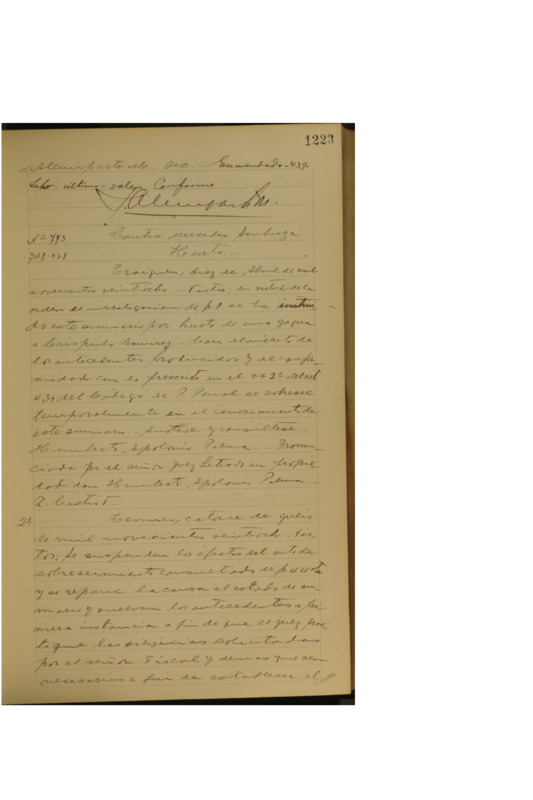 1223
Enmendado - 439
último - valen Conforme
Nº 793 Contra Mercedes
748-928 Hurto. -
Traiguén, diez de Abril de mil
novecientos veintiocho. - Vistos; en virtud de la
orden de investigación de f. 1 se ha
do este sumario por hurto de una yegua
a Crisópulo Ramírez. - Con el mérito de
los antecedentes producidos y de confor-
midad con lo previsto en el Nº 2º del art
439 del Código de P. Penal se sobresee
temporalmente en el conocimiento de
este sumario. - Anótese y consúltese. -
Humberto Apolonio Pelma. - Pronun-
ciada por el señor Juez Letrado en propie-
dad don Humberto Apolonio Pelma. -
R. Castro T. -
2ª Temuco, catorce de
de mil novecientos veintiocho. - Vis-
tos; Se suspenden los efectos del auto de
sobreseimiento consultado de
y se repone la causa al estado de su-
mario y vuelvan los antecedentes a pri-
mera instancia a fin de que el juez prac-
tique las diligencias solicitadas
por el señor Fiscal y demás que sean
necesarias a fin de establecer el //